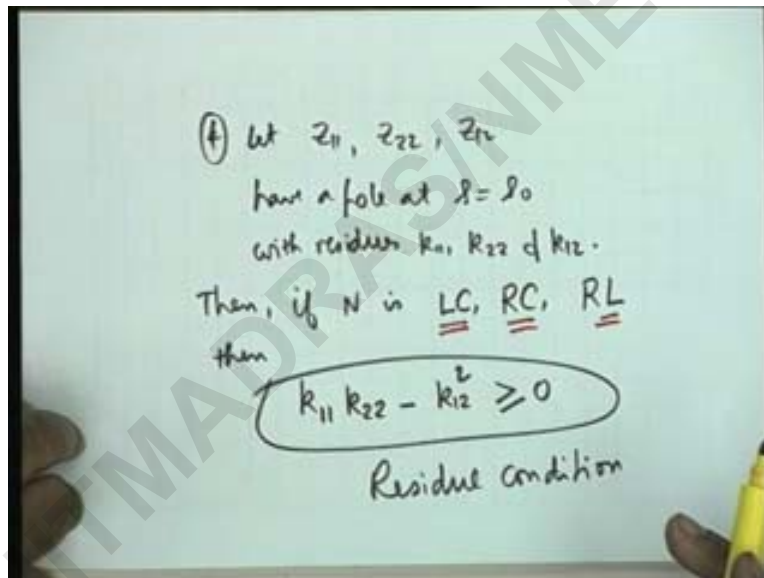 ④ Let Z₁₁, Z₂₂, Z₁₂
have a pole at s = s₀
with residues k₁₁, k₂₂ & k₁₂.
Then, if N is LC, RC, RL
then
k₁₁ k₂₂ – k₁₂² ⩾ 0
Residue condition
IIT MADRAS/NME